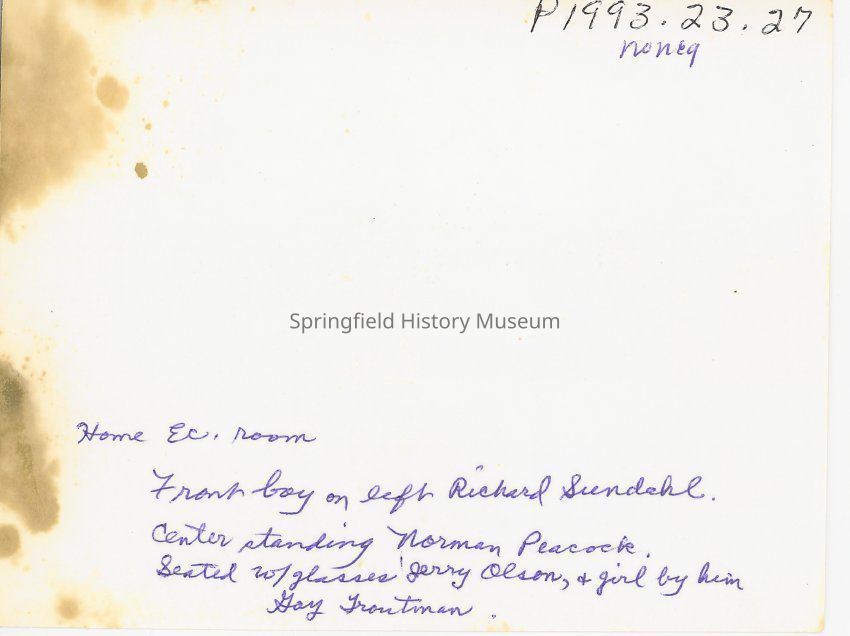 P1993.23.27
noneg
Springfield History Museum
Home Ec. room
Front boy on left Richard Sundahl.
Center standing Norman Peacock.
Seated w/glasses Jerry Olson, & girl by him
Gay Troutman.